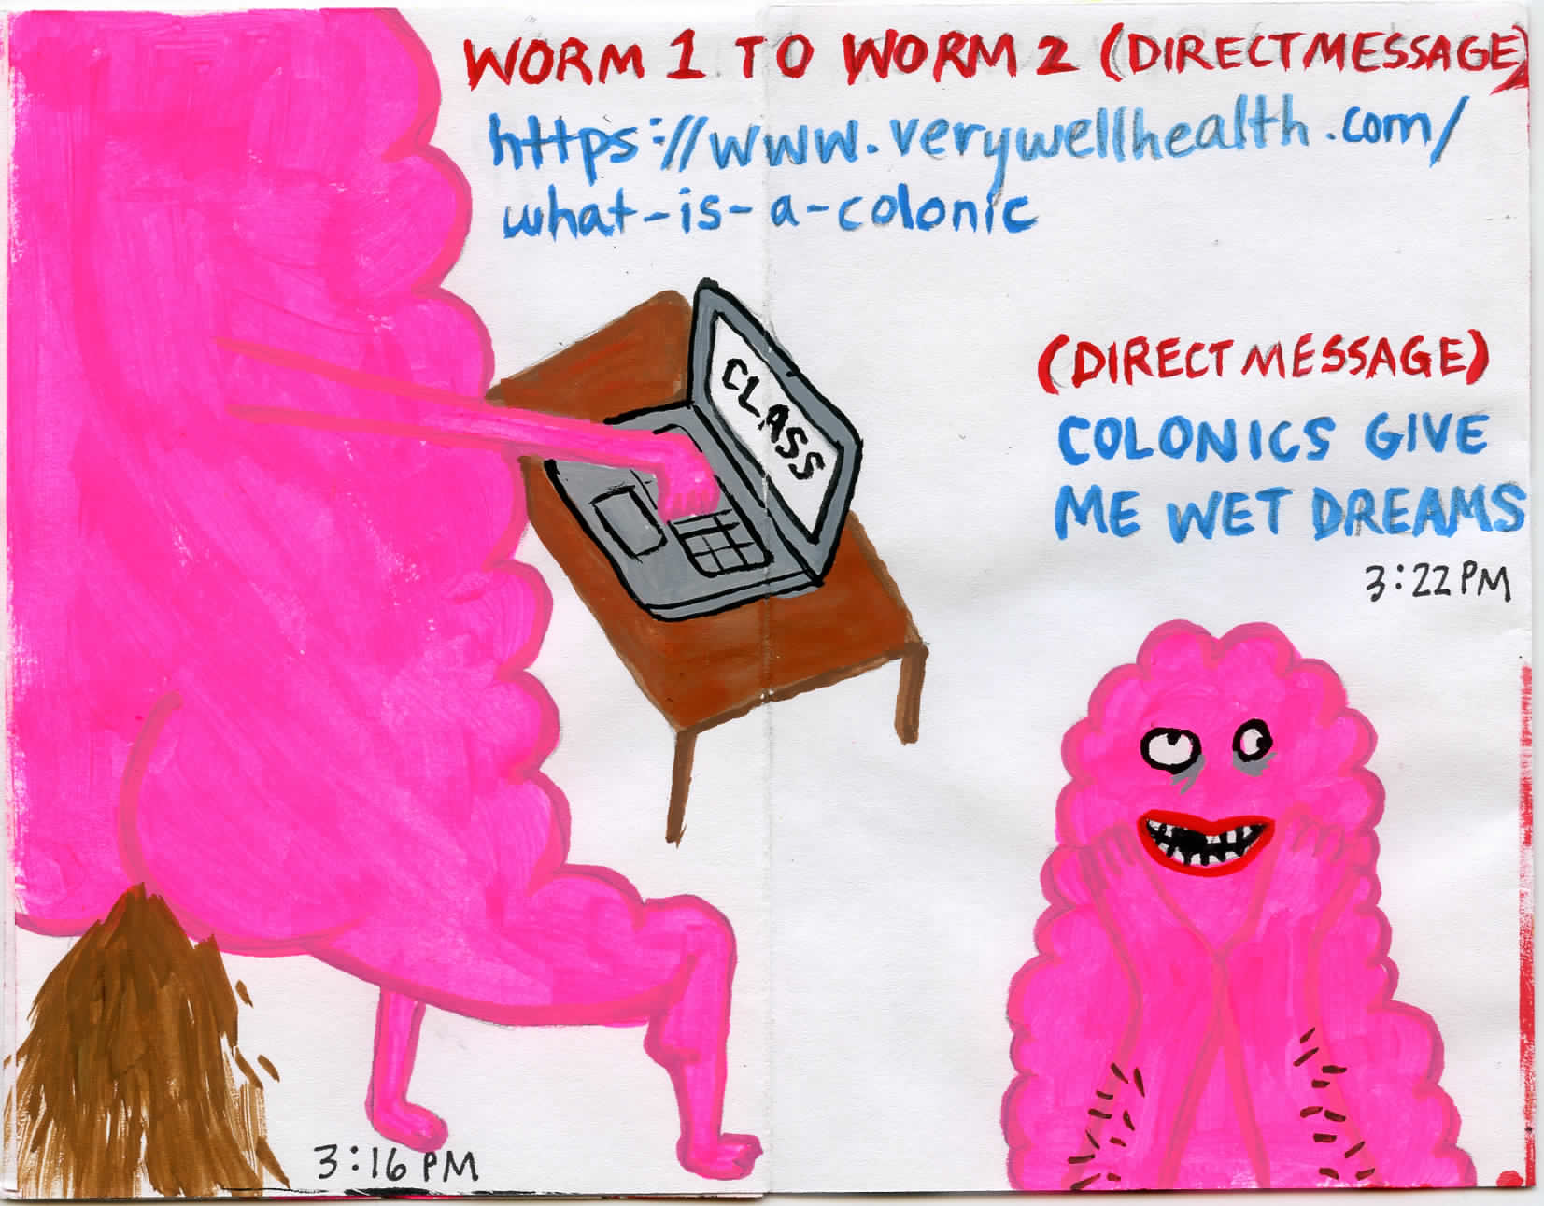 WORM 1 TO WORM 2 (DIRECT MESSAGE)
https://www.verywellhealth.com/
what-is-a-colonic
CLASS
(DIRECT MESSAGE)
COLONICS GIVE
ME WET DREAMS
3:22 PM
3:16 PM